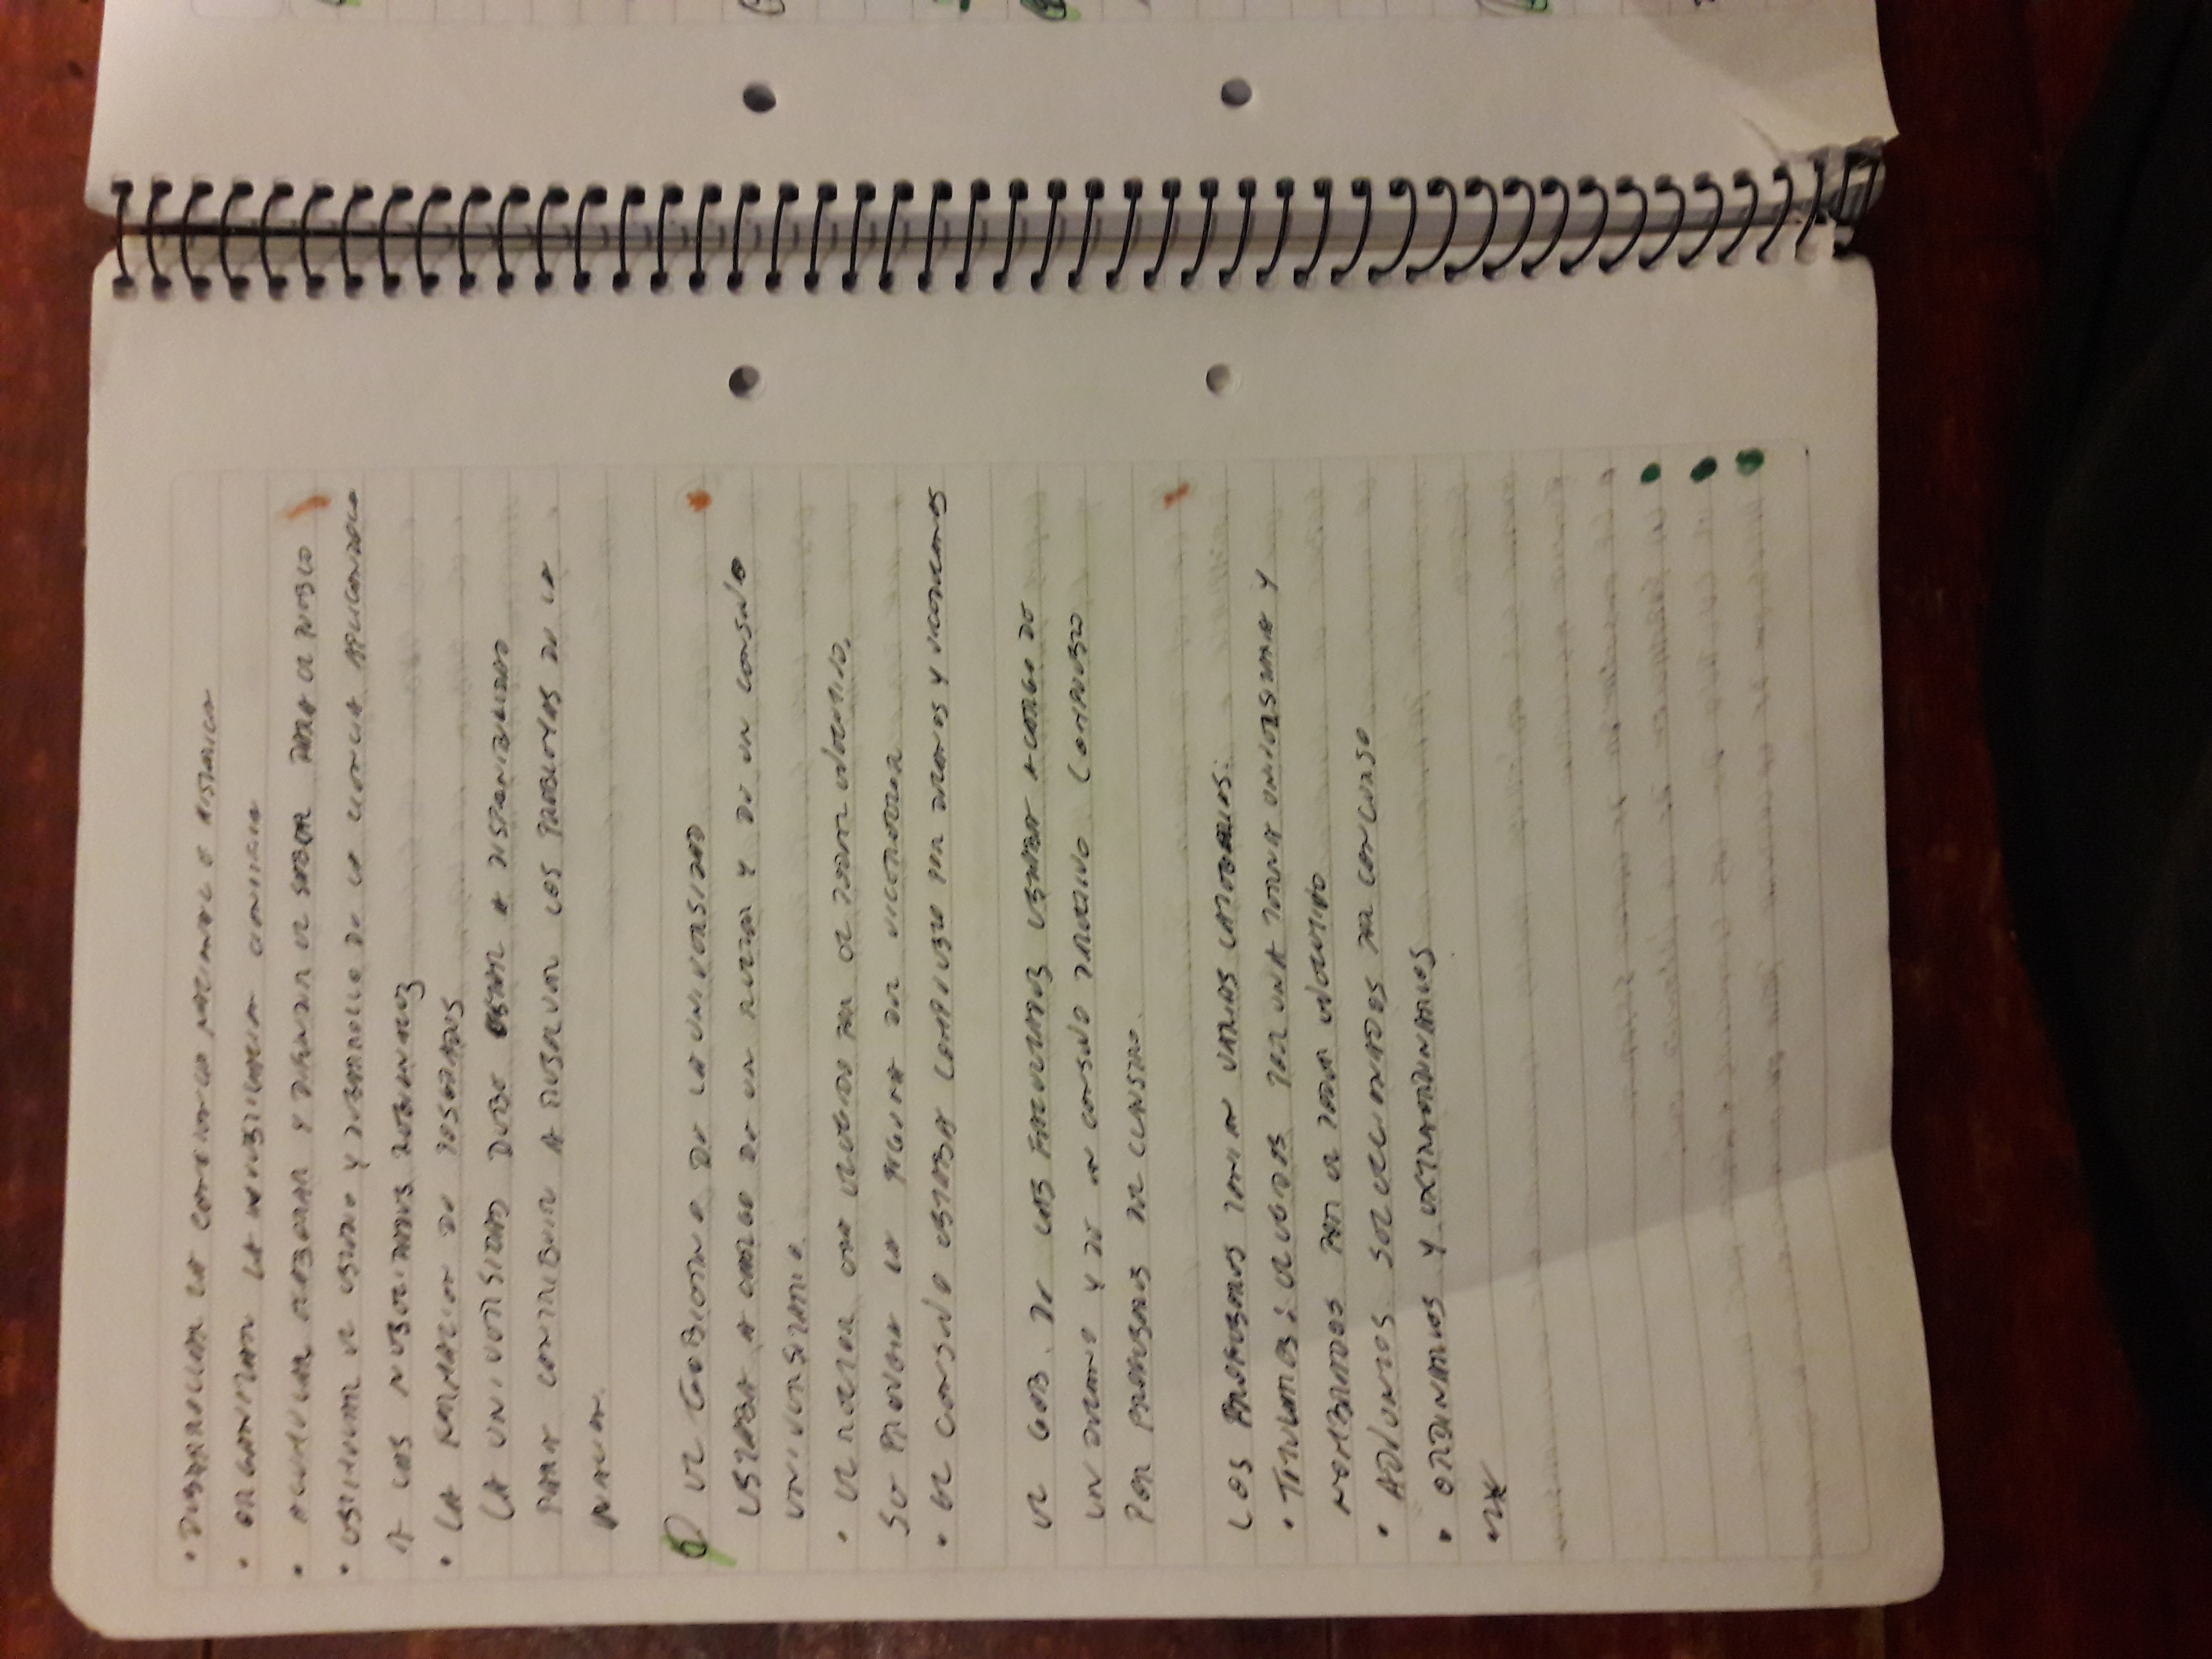 • DESARROLLAR LA CONCIENCIA NACIONAL E HISTORICA
• ORGANIZAR LA INVESTIGACION CIENTIFICA
• ACUMULAR ELABORAR Y DIFUNDIR EL SABER PARA EL PUEBLO
• ESTIMULAR EL ESTUDIO Y DESARROLLO DE LA CIENCIA APLICANDOLO
A LAS NECECIDADES REGIONALES
• LA FORMACION DE POSGRADOS
LA UNIVERSIDAD DEBE ESTAR A DISPONIBILIDAD
PARA CONTRIBUIR A RESOLVER LOS PROBLEMAS DE LA
NACION.
EL GOBIERNO DE LA UNIVERSIDAD
ESTABA A CARGO DE UN RECTOR Y DE UN CONSEJO
UNIVERSITARIO.
• EL RECTOR ERA ELEGIDO POR EL PODER EJECUTIVO.
SE PREVEIA LA FIGURA DEL VICERRECTOR
• EL CONSEJO ESTABA COMPUESTO POR DECANOS Y VICEDECANOS
EL GOB. DE LAS FACULTADES ESTABA A CARGO DE
UN DECANO Y DE UN CONSEJO DIRECTIVO COMPUESTO
POR PROFESORES DEL CLAUSTRO.
LOS PROFESORES TENIAN VARIAS CATEGORIAS:
• TITULARES: ELEGIDOS POR UNA TERNA UNIVERSITARIA Y
NOMBRADOS POR EL PODER EJECUTIVO
• ADJUNTOS. SELECCIONADOS POR CONCURSO
• ORDINARIOS Y EXTRAORDINARIOS